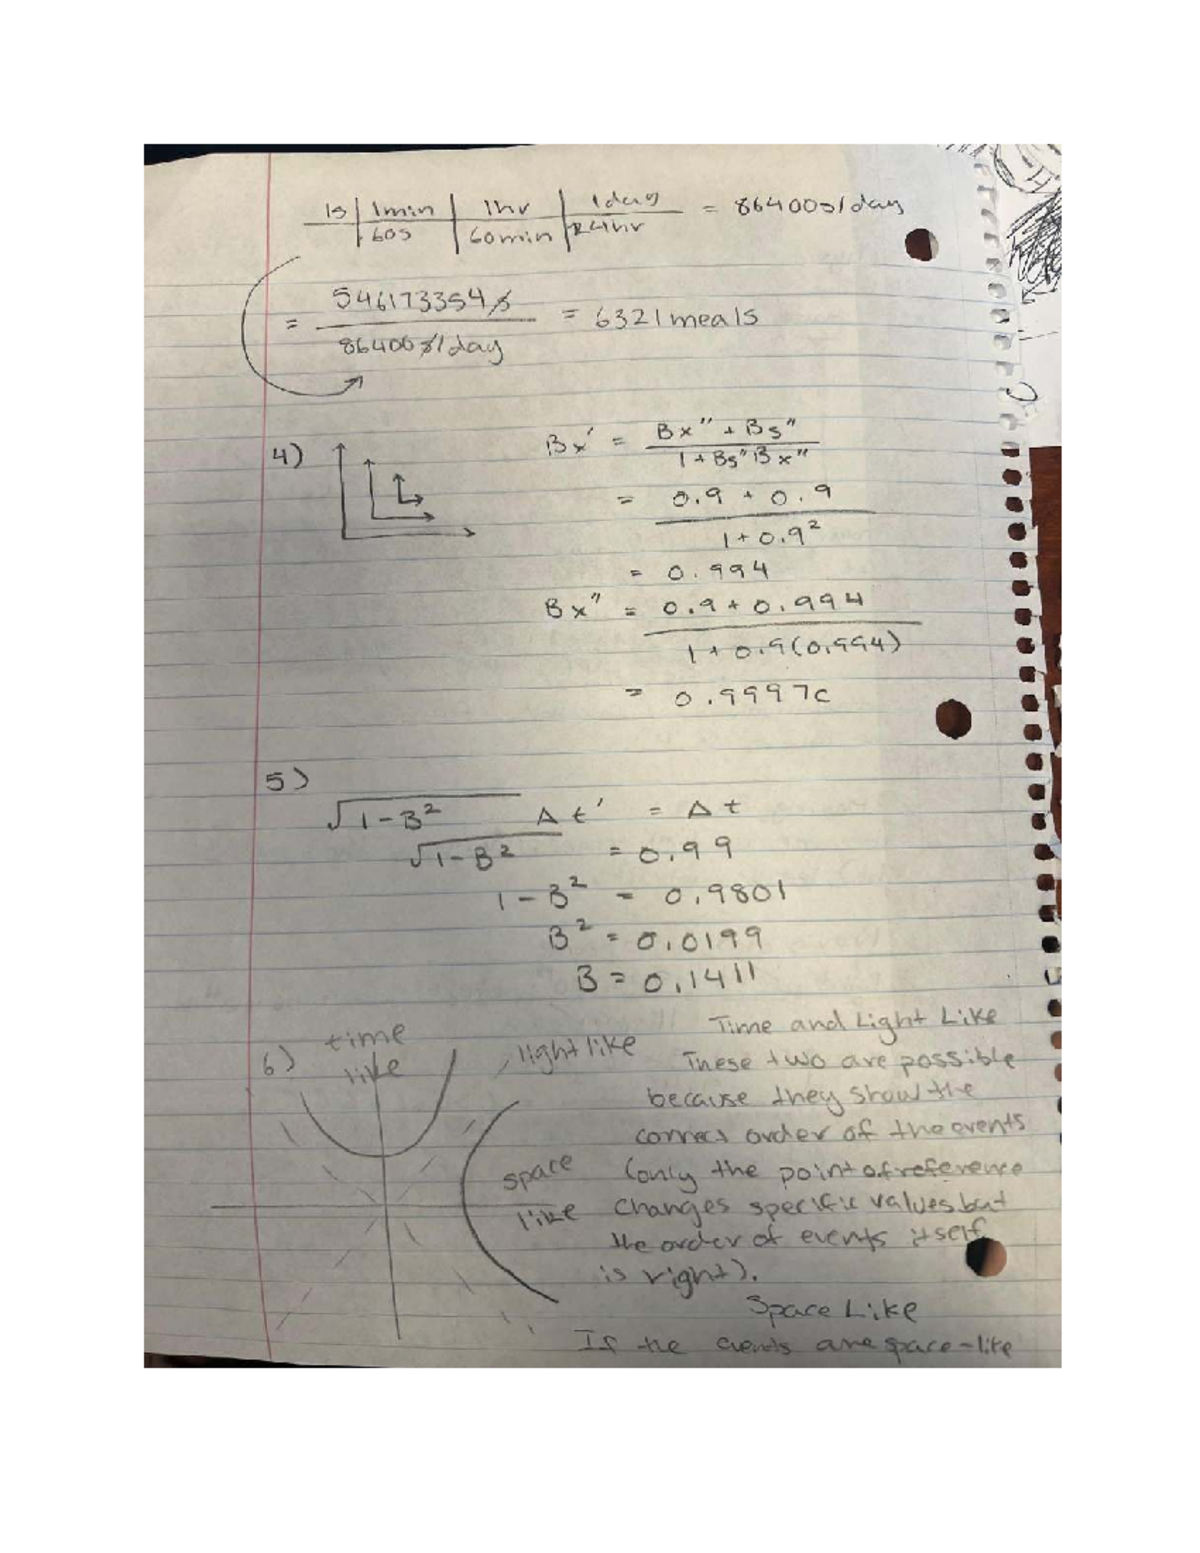 1s | 1min | 1hr | 1day = 86400s/day
60s | 60min | 24hr
= 546173354s / 86400s/day = 6321 meals
4) Bx' = Bx" + Bs" / 1 + Bs"Bx"
= 0.9 + 0.9 / 1 + 0.9²
= 0.994
Bx" = 0.9 + 0.994 / 1 + 0.9(0.994)
= 0.9997c
5)
√1-B² Δt' = Δt
√1-B² = 0.99
1-B² = 0.9801
B² = 0.0199
B = 0.1411
6) time like
light like
space like
Time and Light Like
These two are possible
because they show the
correct order of the events
(only the point of reference
changes specific values but
the order of events itself
is right).
Space Like
If the events are space-like